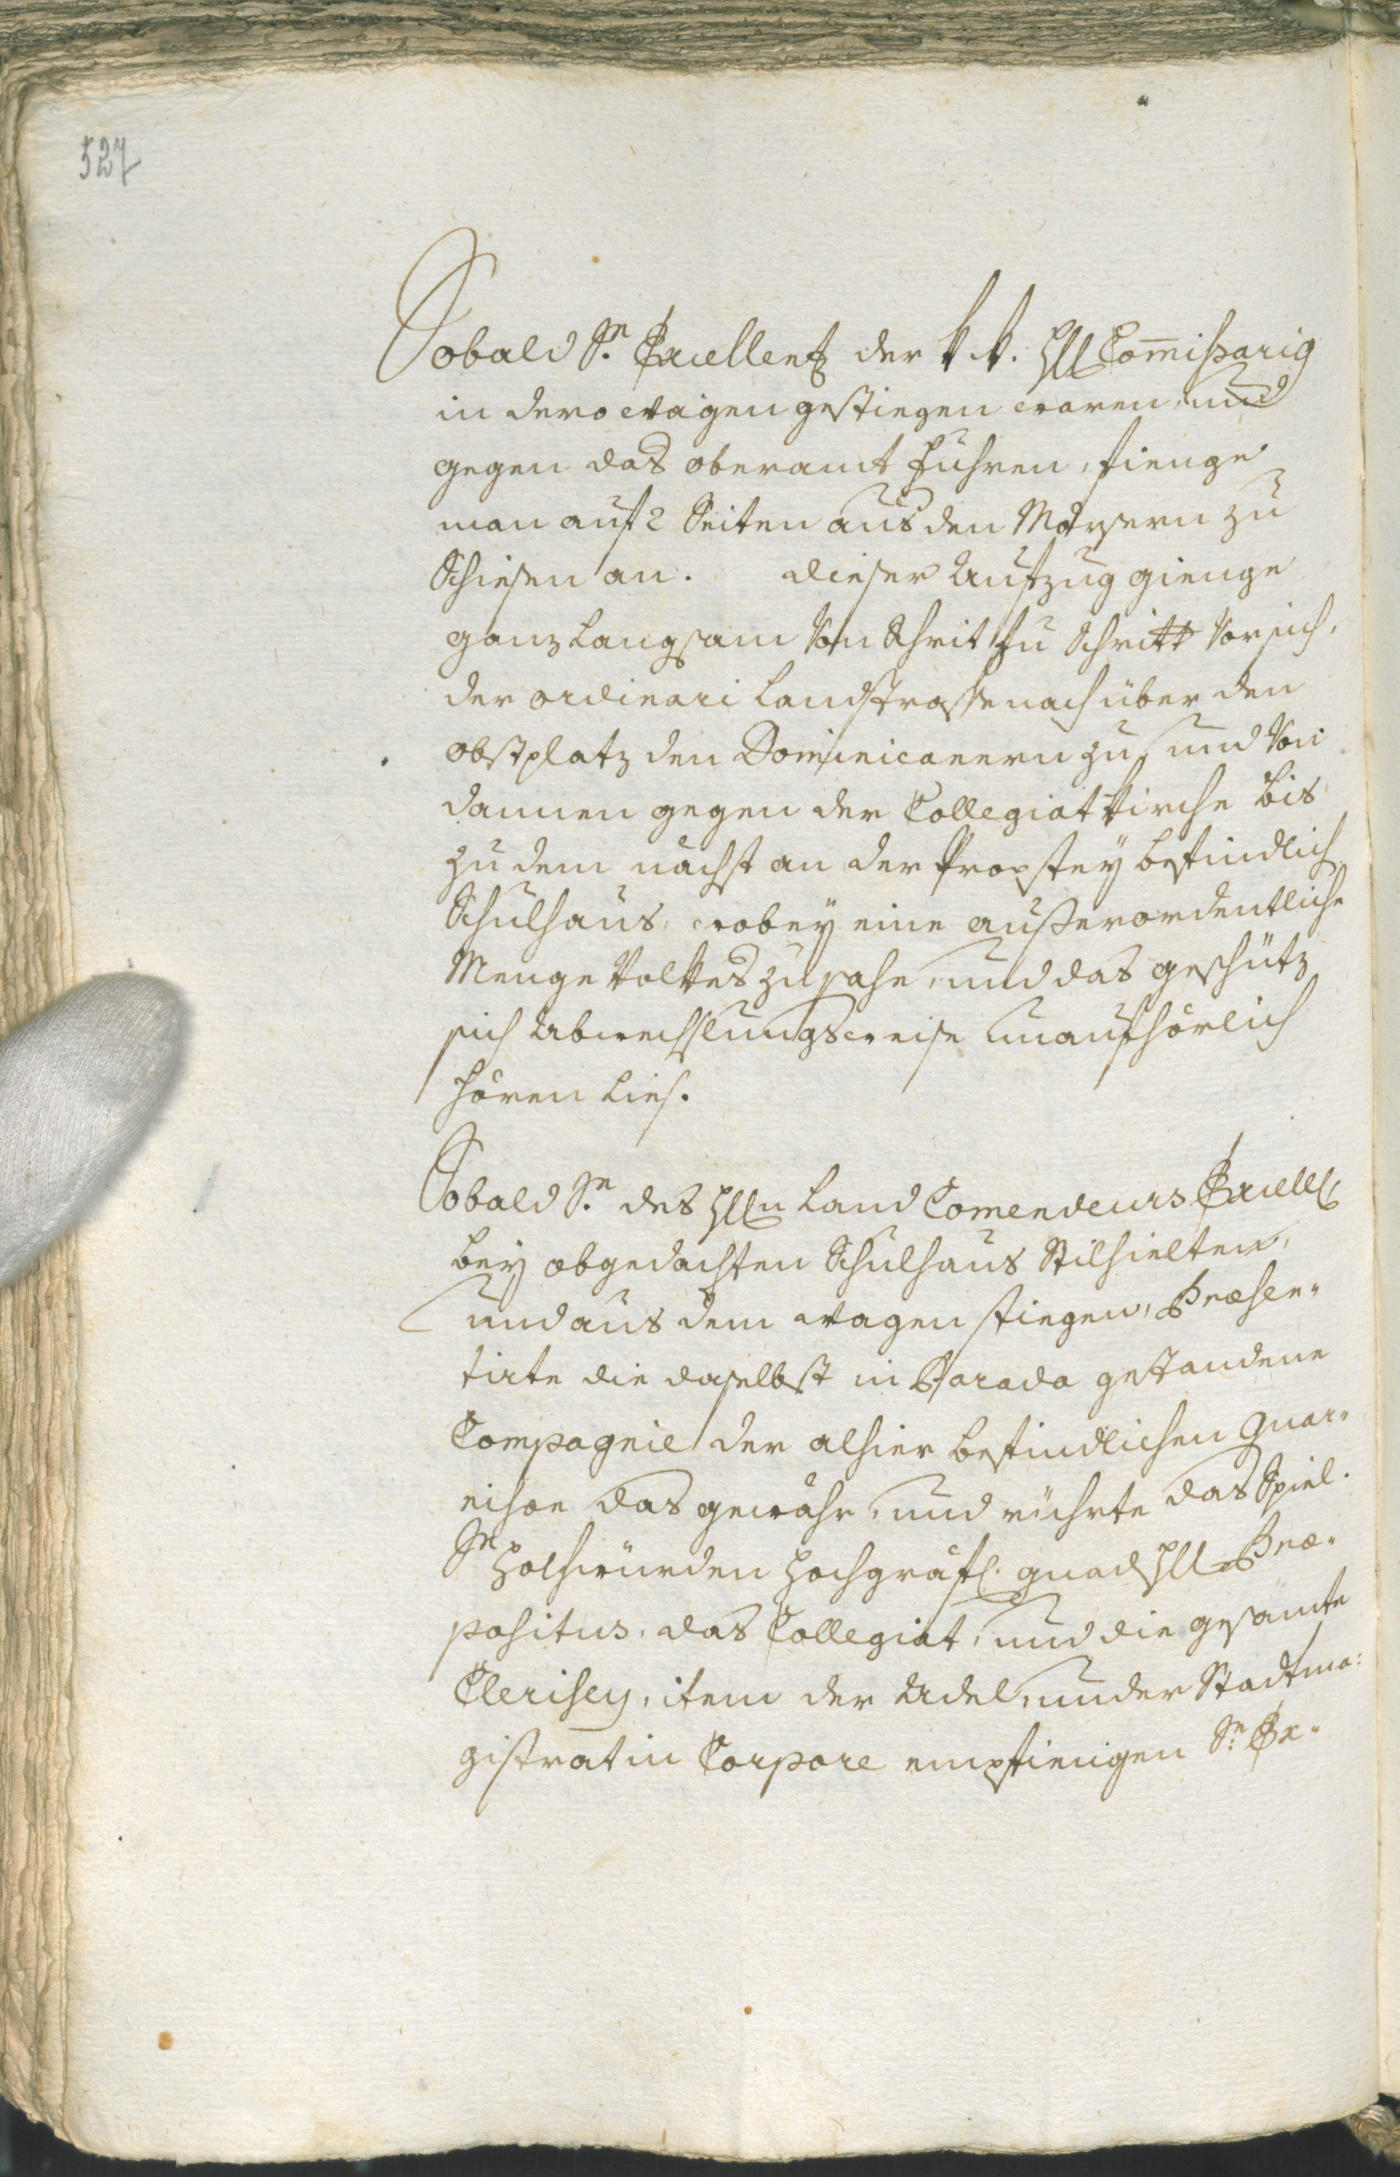 527
Sobald Sr. Excellentz der k. k. Hll Com̅issarig
in dero wagen gestiegen waren, und
gegen das oberamt fuhren, fienge
man auf 2 Seiten aus den Mörsern zu
Schiesen an. dieser Aufzug gienge
ganz Langsam Von Schrit zu Schritt Vor sich,
der ordinari Landstrasse nach über den
obstplatz den Dominicanern zu, und Von
dannen gegen der Collegiat kirche bis
zu dem nächst an der Propstey befindlich
Schulhaus, wobey eine außerordentliche
Menge Volkes zusahe, und das geschütz
sich Abwechslungsweise unaufhörlich
hören Lies.
Sobald Sr. des Hlln Land Comendeurs Excell
bey obgedachten Schulhaus Stilhielten,
und aus dem wagen stiegen, Præsen-
tirte die daselbst in Parada gestandene
Compagnie der alhier befindlichen Guar-
nison das gewähr, und rührte das Spiel.
Sr Hochwürden Hochgräfl. gnad Hll Præ-
positus, das Collegiat, und die gesamte
Clerisey, item der Adel, und der Stadtma:
gistrat in Corpore empfiengen Sr. Ex-